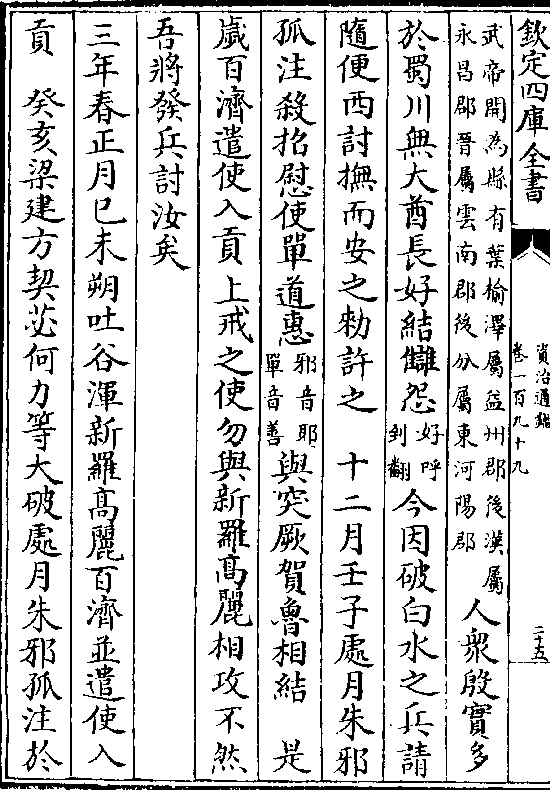 欽定四庫全書
資治通鑑
卷一百九十九
二十五
武帝開為縣有葉榆澤屬益州郡後漢屬
永昌郡晉屬雲南郡後分屬東河陽郡
人衆殷實多
於蜀川無大酋長好結讎怨
好呼
到翻
今因破白水之兵請
隨便西討撫而安之勑許之　十二月壬子處月朱邪
孤注殺招慰使單道惠
邪音耶
單音善
與突厥賀魯相結　是
歲百濟遣使入貢上戒之使勿與新羅高麗相攻不然
吾將發兵討汝矣
三年春正月己未朔吐谷渾新羅高麗百濟並遣使入
貢　癸亥梁建方契苾何力等大破處月朱邪孤注於